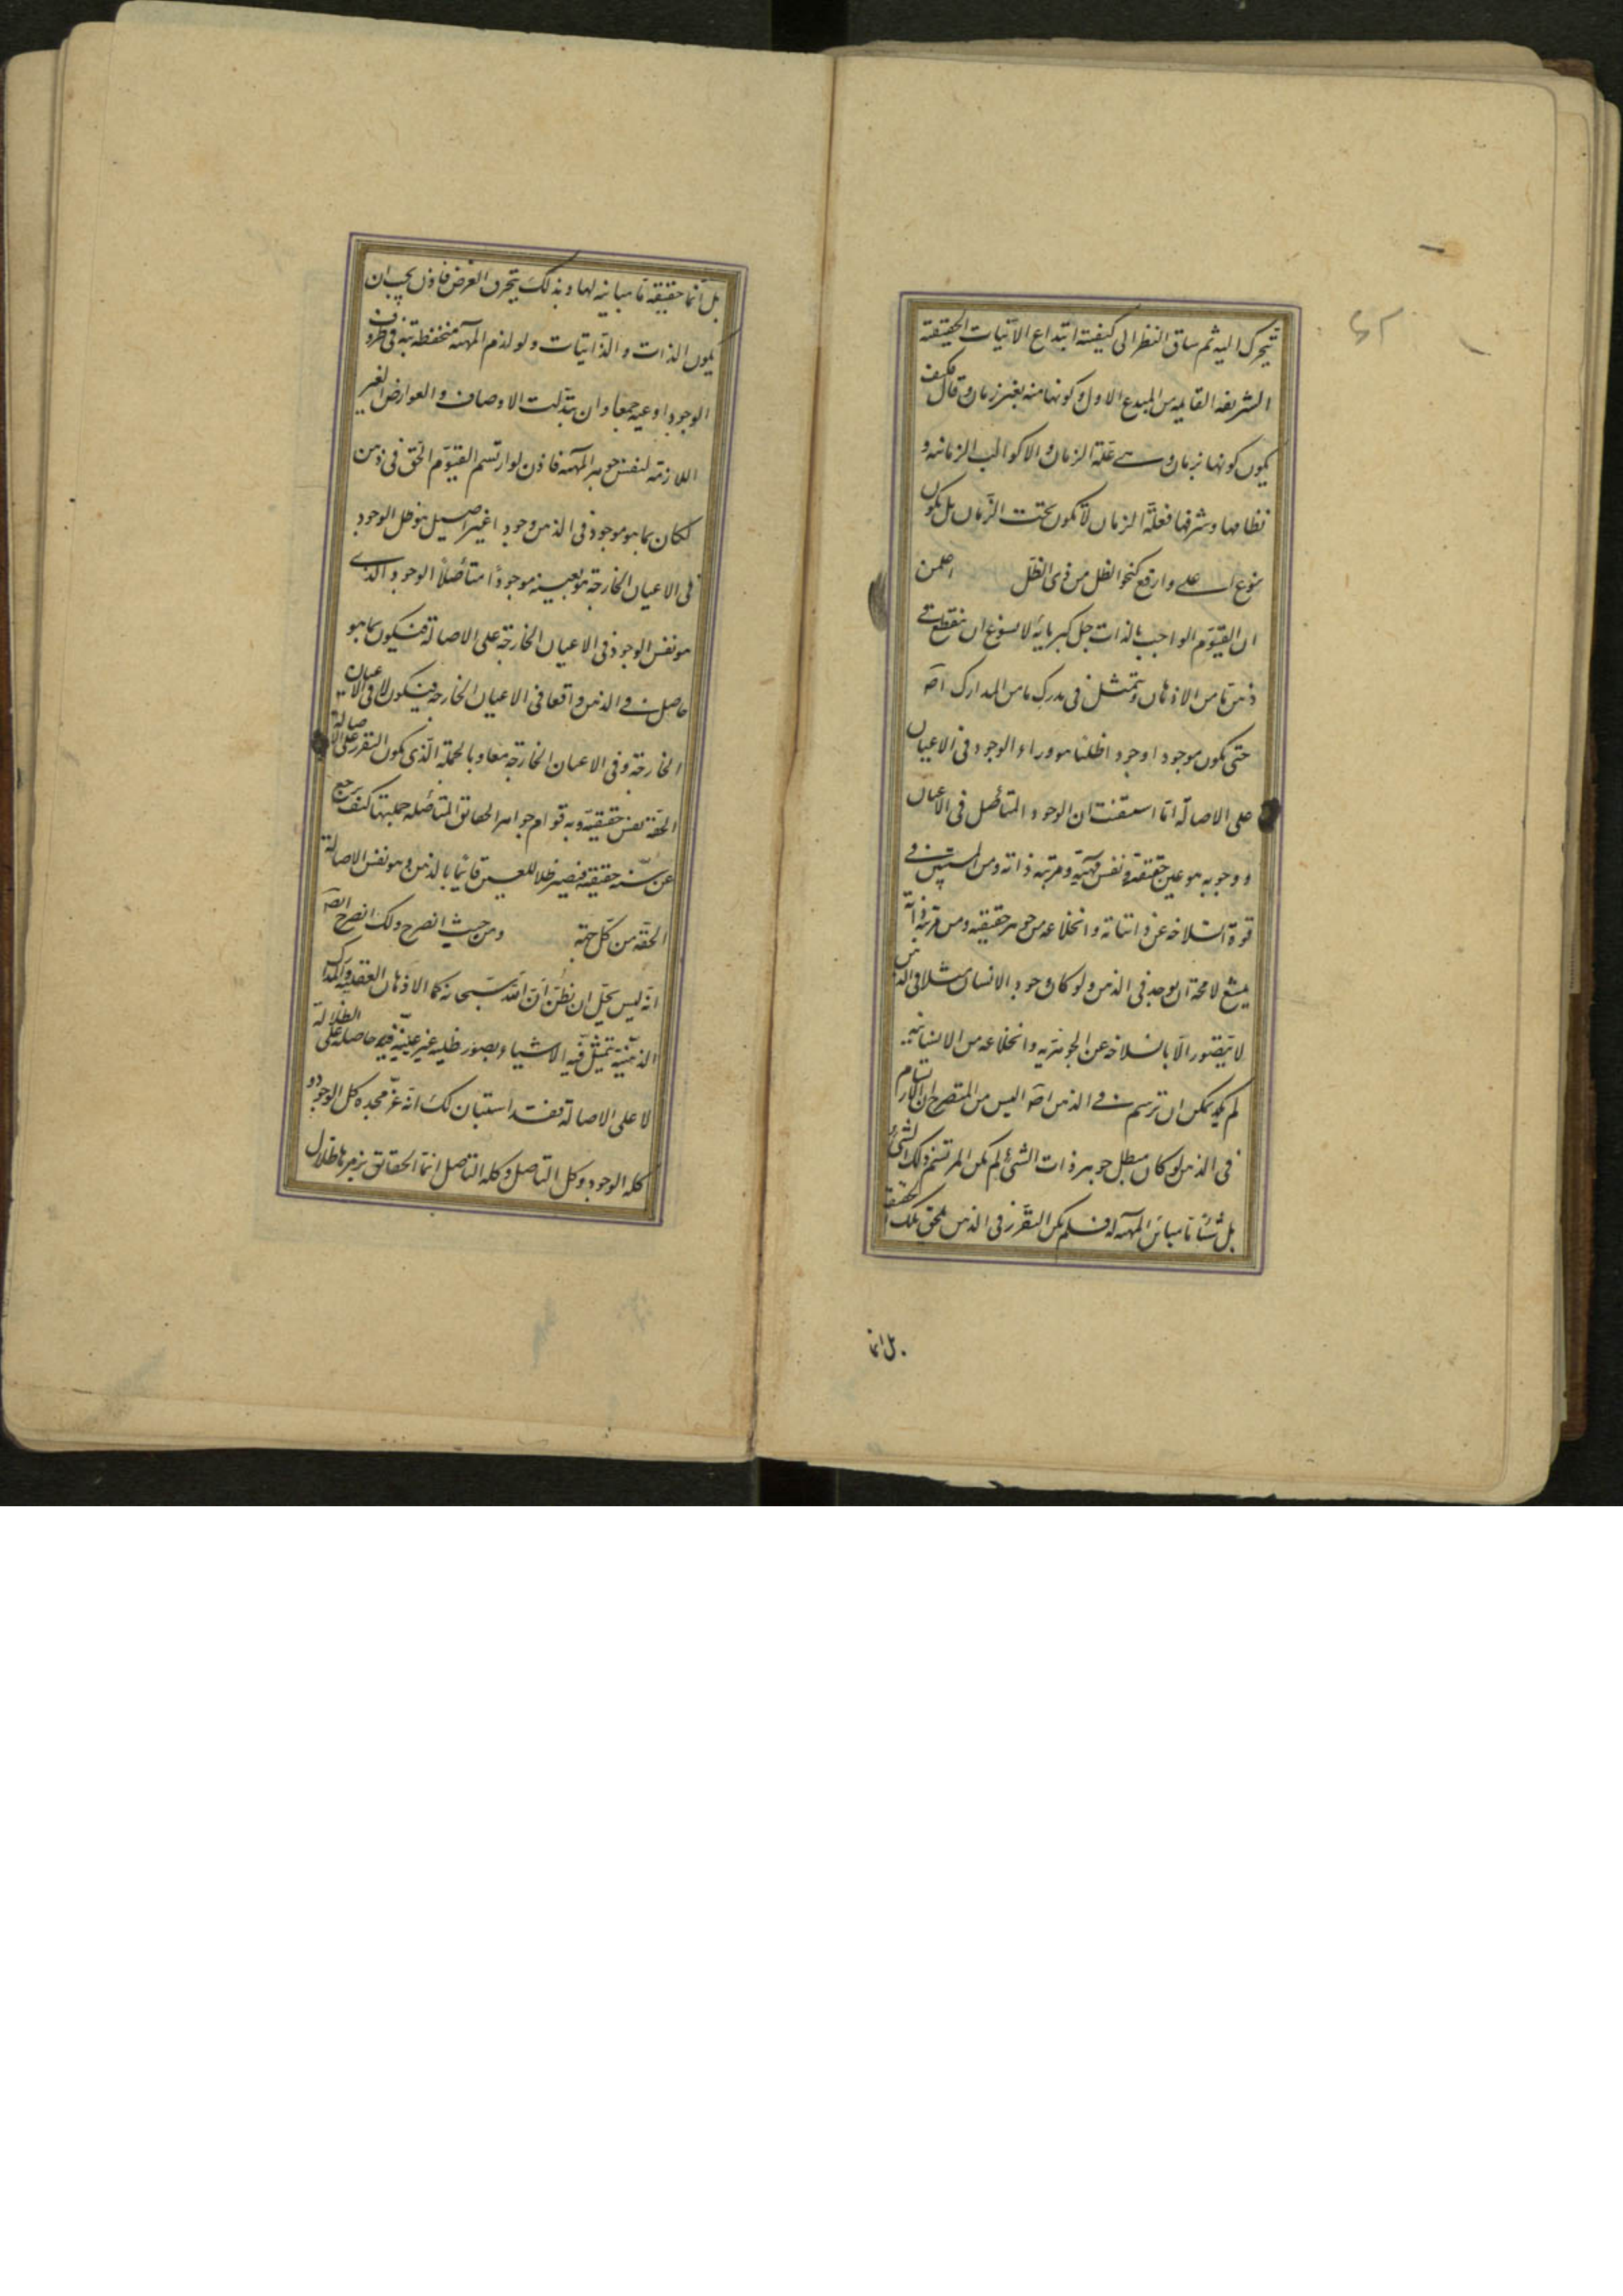 يتحرك اليه ثم ساق النظر الى كيفية ابتداع الانيات الحقيقة
الشريفة القايمه من المبدع الاول و كونها منه بغير زمان و قال فكيف
يكون كونها بزمان و هى علة الزمان و الاكوان الزمانيه و
نظامها و شرفها فعلة الزمان لا تكون تحت الزمان بل تكون
بنوع اعلى و ارفع كنحو الظل من ذى الظل
ان القيوم الواجب بالذات جل كبريائه لا يسوغ ان ينطبع فى
ذهن ما من الاذهان و يتمثل فى مدرك ما من المدارك اص
حتى يكون موجودا وجودا ظليا هو وراء الوجود فى الاعيان
على الاصالة اما استيقنت ان الوجود المتاصل فى الاعيان
و وجوبه هو عين حقيقته و نفس مهيته و مرتبة ذاته و من المستبين فى
قوة انسلاخه عن ذاتياته و انخلاعه من جوهر حقيقته و من مرتبة ذاته
يمتنع لا محة ان يوجد فى الذهن و لو كان وجود الانسان مثلا فى الذهن
لا يتصور الا بانسلاخه عن الجوهرية و انخلاعه من الانسانية
لم يكد يمكن ان يرتسم فى الذهن اص اليس من المتصرح ان الارتسام
فى الذهن لو كان مبطل جوهر ذات الشئ لم يكن المرتسم ذلك الشئ
بل شئا ما مباين المهية له فلم يكن التقرر فى الذهن يلحق تلك الحقيقة
بل انما
بل انما حقيقة ما مباينة لها و بذلك ينخرق الفرض فاذن يجب ان
يكون الذات و الذاتيات و لوازم المهية منحفظة فى ظروف
الوجود و اوعيه جمعا و ان تبدلت الاوصاف و العوارض الغير
اللازمة لنفس جوهر المهية فاذن لو ارتسم القيوم الحق فى ذهن
لكان بما هو موجود فى الذهن وجودا غير اصيل هو ظل الوجود
فى الاعيان الخارجة هو بعينه موجودا متأصلا الوجود الذى
هو نفس الوجود فى الاعيان الخارجة على الاصالة فيكون بما هو
حاصل فى الذهن واقعا فى الاعيان الخارجة فيكون لا فى الاعيان
الخارجة و فى الاعيان الخارجة معا و بالجملة الذى يكون التقرر على الاصالة
الحقة نفس حقيقته و به قوام جواهر الحقايق المتأصلة جملتها كيف يرجع
عن سنه حقيقته فيصير ظلا للعين قائما بالذهن و هو نفس الاصالة
الحقه من كل جهة و من حيث انصرح لك انصرح ايض
انه ليس يحل ان نظن ان الله سبحانه كما الاذهان العقلية و المدارك
الذهنية يتمثل فيه الاشياء بصور ظليه غير عينيه فيه حاصلة على الظلالة
لا على الاصالة فقد استبان لك انه عز مجده كل الوجود و
كله الوجود و كل التاصل و كله التاصل انما الحقائق بزمرها ظلال